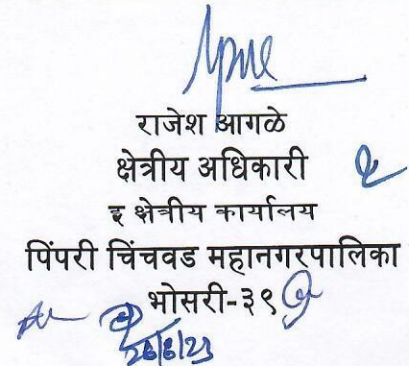 राजेश आगळे
क्षेत्रीय अधिकारी
इ क्षेत्रीय कार्यालय
पिंपरी चिंचवड महानगरपालिका
भोसरी-३९
26/6/23